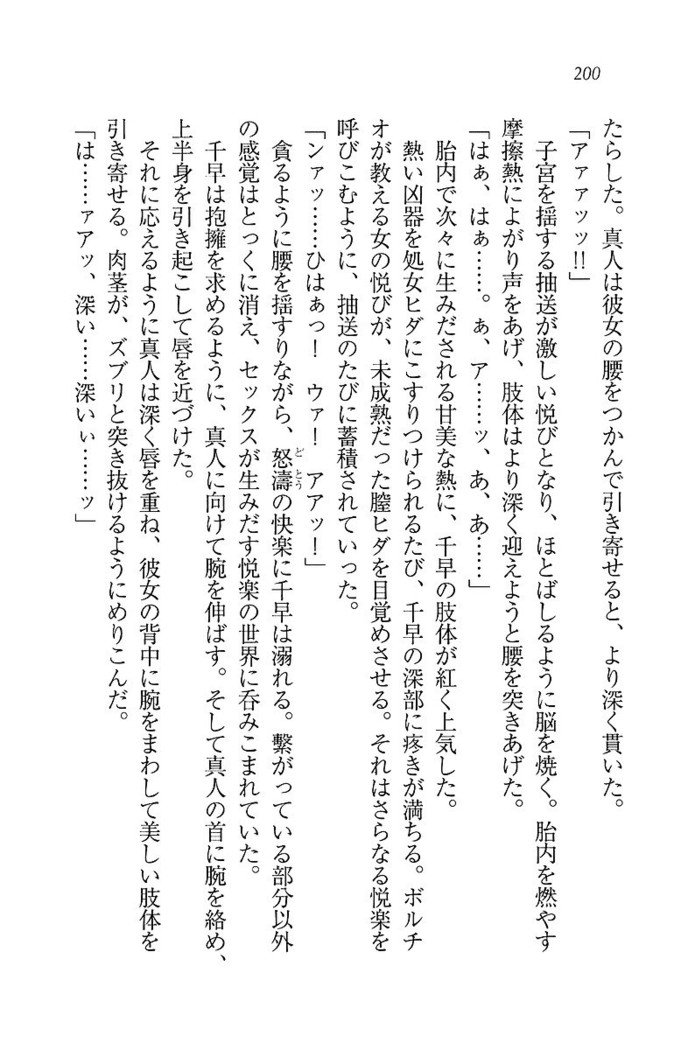 200
たらした。真人は彼女の腰をつかんで引き寄せると、より深く貫いた。
「アァァッッ!!」
　子宮を揺する抽送が激しい悦びとなり、ほとばしるように脳を焼く。胎内を燃やす
摩擦熱によがり声をあげ、肢体はより深く迎えようと腰を突きあげた。
「はぁ、はぁ……。ぁ、ア……ッ、あ、あ……」
　胎内で次々に生みだされる甘美な熱に、千早の肢体が紅く上気した。
　熱い凶器を処女ヒダにこすりつけられるたび、千早の深部に疼きが満ちる。ボルチ
オが教える女の悦びが、未成熟だった膣ヒダを目覚めさせる。それはさらなる悦楽を
呼びこむように、抽送のたびに蓄積されていった。
「ンァッ……ひはぁっ！　ウァ！　アアッ！」
　貪るように腰を揺すりながら、怒濤の快楽に千早は溺れる。繋がっている部分以外
の感覚はとっくに消え、セックスが生みだす悦楽の世界に呑みこまれていた。
　千早は抱擁を求めるように、真人に向けて腕を伸ばす。そして真人の首に腕を絡め、
上半身を引き起こして唇を近づけた。
　それに応えるように真人は深く唇を重ね、彼女の背中に腕をまわして美しい肢体を
引き寄せる。肉茎が、ズブリと突き抜けるようにめりこんだ。
「は……ァアッ、深い……深いぃ……ッ」